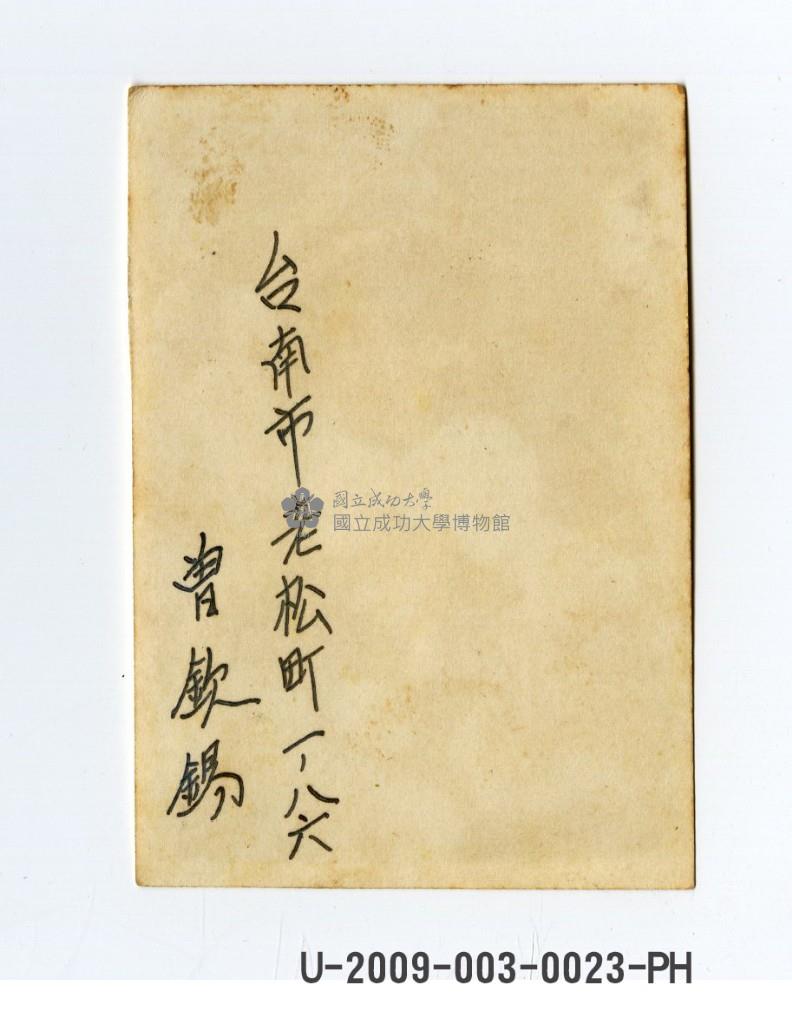 台南市老松町一ノ八六
曾欽錫
國立成功大學
國立成功大學博物館
U-2009-003-0023-PH